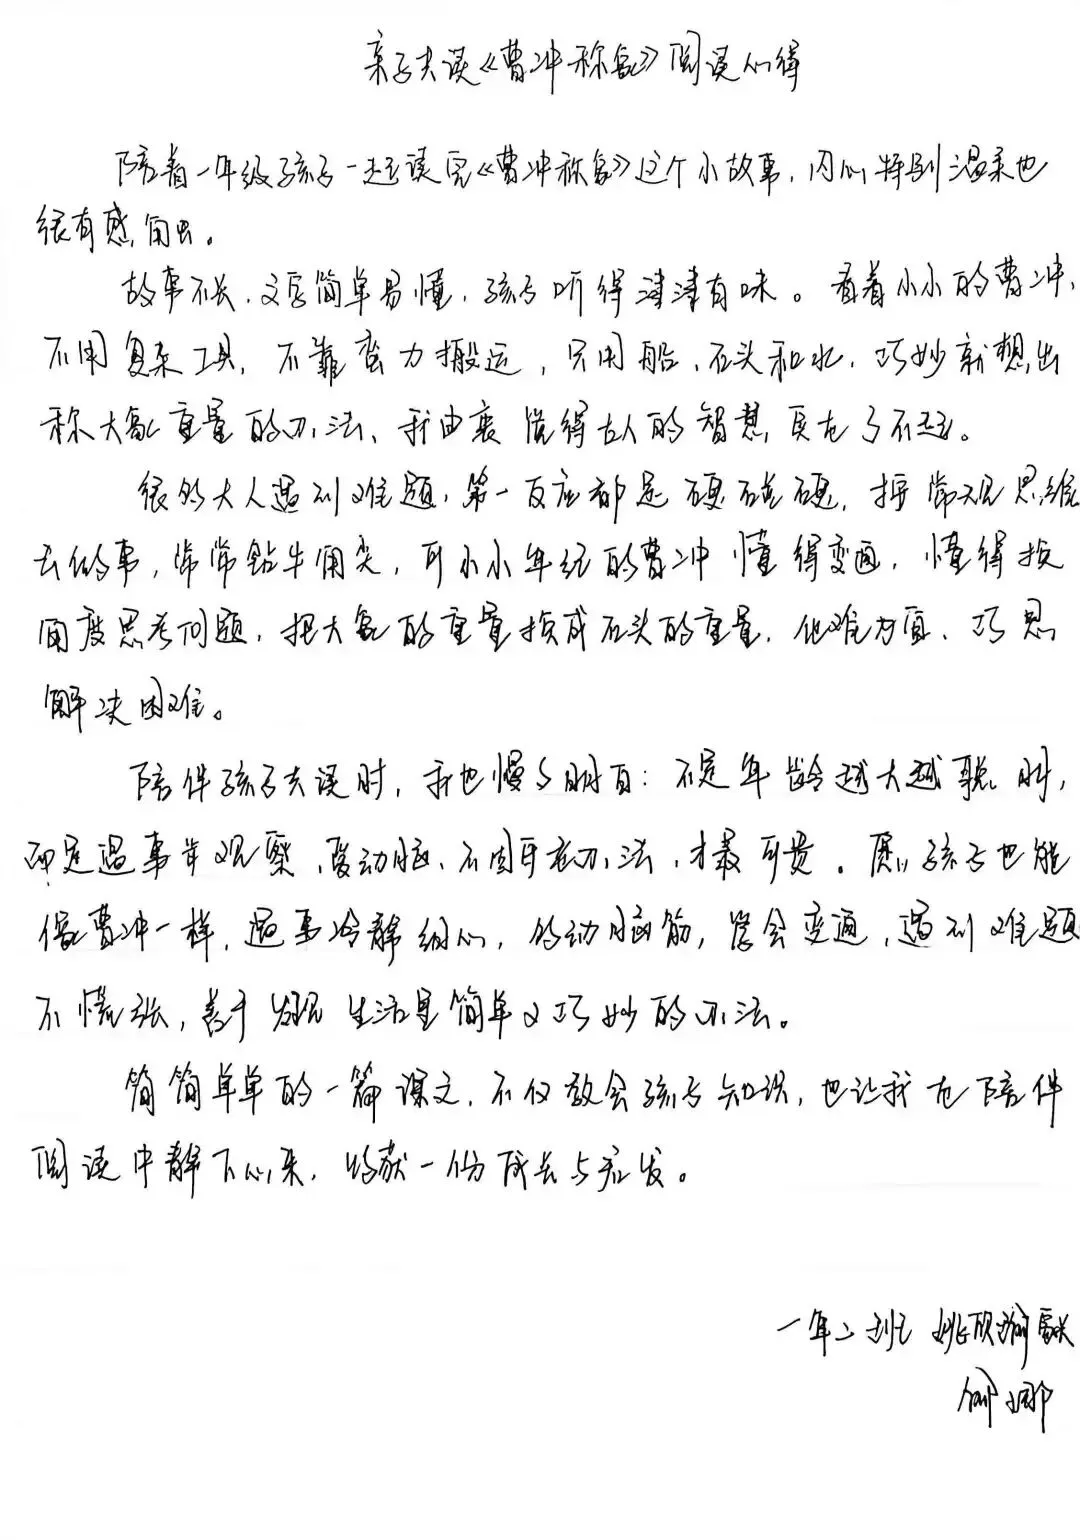 亲子共读《曹冲称象》阅读心得
陪着一年级孩子一起读完《曹冲称象》这个小故事，内心特别温柔也
很有感触。
故事不长，文字简单易懂，孩子听得津津有味。看着小小的曹冲，
不用复杂工具，不靠蛮力搬运，只用船、石头和水，巧妙就想出
称大象重量的办法，我由衷觉得古人的智慧真在了不起。
很多大人遇到难题，第一反应都是硬碰硬，按常规思维
去做事，常常钻牛角尖，可小小年纪的曹冲懂得变通，懂得换
角度思考问题，把大象的重量换成石头的重量，化难为简、巧思
解决困难。
陪伴孩子共读时，我也慢慢明白：不是年龄越大越聪明，
而是遇事肯观察、爱动脑、不固守老办法，才最可贵。愿孩子也能
像曹冲一样，遇事冷静细心，多动脑筋，学会变通，遇到难题
不慌张，善于发现生活里简单又巧妙的办法。
简简单单的一篇课文，不仅教会孩子知识，也让我在陪伴
阅读中静下心来，收获一份成长与启发。
一年二班 姚欣瑜
俞娜